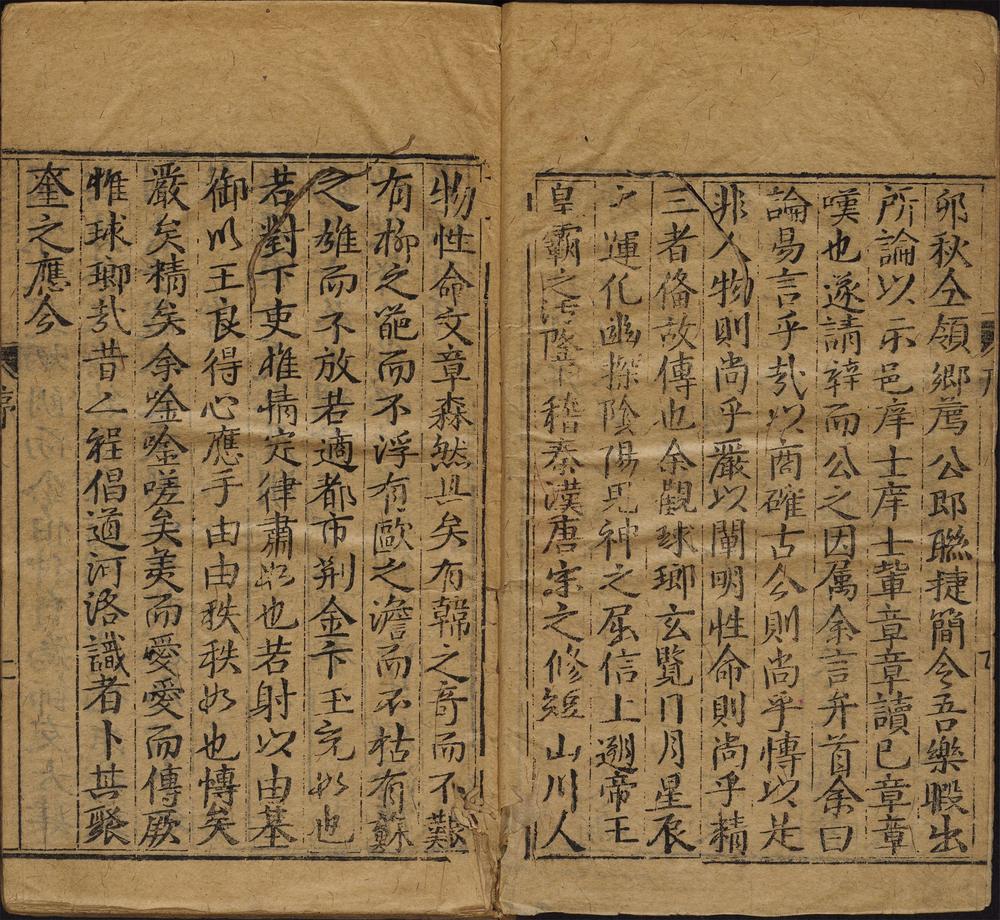 卯秋仝領鄉薦公即聯捷簡令吾樂暇出
所論以示邑庠士庠士軰章章讀已章章
嘆也遂請辝而公之因属余言弁首余曰
論昜言乎㢤以商確古今則尚乎愽以是
非人物則尚乎嚴以闡明性命則尚乎精
三者俻故傳也余觀球瑯玄覧日月星辰
之運化幽探隂陽鬼神之屈信上遡帝王
皇霸之汚隆下稽秦漢唐宗之修短山川人
物性命文章森然具矣有韓之竒而不艱
有柳之葩而不浮有歐之澹而不枯有蘇
之雄而不放若適都市荆金卞玉充如也
若對下吏惟情定律肅如也若射以由基
御以王良得心應手由由秩秩如也愽矣
嚴矣精矣余唫唫嗟矣羙而愛愛而傳厥
惟球瑯㢤昔之程倡道河洛識者卜其聚
奎之應今
序